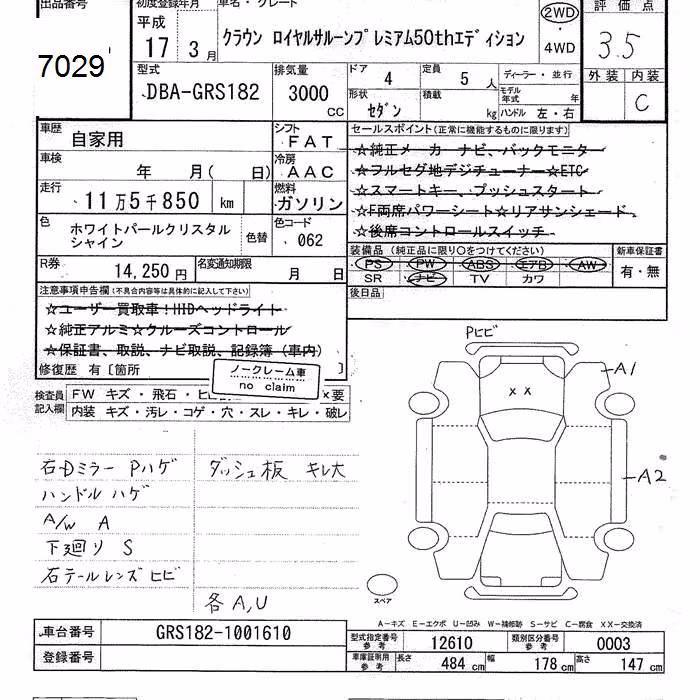 出品番号 初度登録年月 車名・グレード 2WD 評価点
平成 クラウン ロイヤルサルーンプレミアム50thエディション ・ 3.5
7029 17年 3月 4WD
型式 排気量 ドア 4 定員 5人 ディーラー・並行 外装 内装
DBA-GRS182 3000 CC 形状 セダン 積載 kg モデル年式 年 C
ハンドル 左・右
車歴 自家用 シフト FAT セールスポイント(正常に機能するものに限ります)
☆純正メーカーナビ、バックモニター
車検 年 月( 日) 冷房 AAC ☆フルセグ地デジチューナー☆ETC
走行 11万5千850 km 燃料 ガソリン ☆スマートキー、プッシュスタート
☆F両席パワーシート☆リアサンシェード
色 ホワイトパールクリスタルシャイン 色替 色コード 062 ☆後席コントロールスイッチ
装備品(純正品に限り○をつけてください) 新車保証書
R券 14,250円 名変通知期限 月 日 PS PW ABS エアB AW 有・無
SR ナビ TV カワ
注意事項申告欄(不具合内容等は具体的に記入して下さい) 後日品
☆ユーザー買取車!HIDヘッドライト
☆純正アルミ☆クルーズコントロール
☆保証書、取説、ナビ取説、記録簿(車内)
修復歴 有〔箇所 〕
ノークレーム車
no claim
検査員記入欄 FW キズ・飛石・ヒビ ×要
内装 キズ・汚レ・コゲ・穴・スレ・キレ・破レ
Pヒビ
A1
x x
A2
石Dミラー Pハゲ ダッシュ板 キレ大
ハンドル ハゲ
A/W A
下廻り S
石テールレンズ ヒビ
各A,U
スペア
A-キズ E-エクボ U-凹み W-補修跡 S-サビ C-腐食 XX-交換済
車台番号 GRS182-1001610 型式指定番号 参考 12610 類別区分番号 参考 0003
登録番号 車庫証明用 参考 長さ 484 cm 幅 178 cm 高さ 147 cm